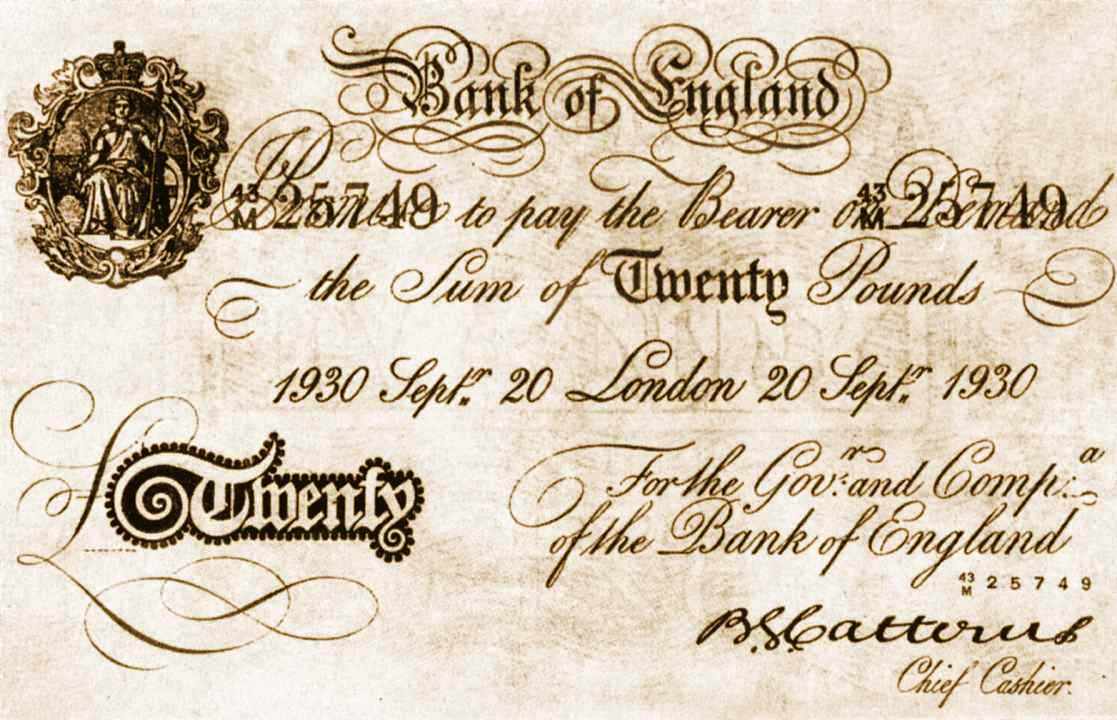 Bank of England
43/M 25749 43/M 25749
I Promise to pay the Bearer on Demand
the Sum of Twenty Pounds
1930 Septr. 20 London 20 Septr. 1930
£ Twenty
For the Govr. and Compa.
of the Bank of England
43/M 25749
B.G. Catterns
Chief Cashier.